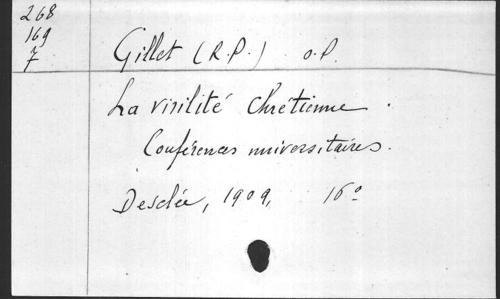 268
169
7
Gillet (R.P.) O.P.
La virilité Chrétienne.
Conférences universitaires.
Desclée, 1909, 16°